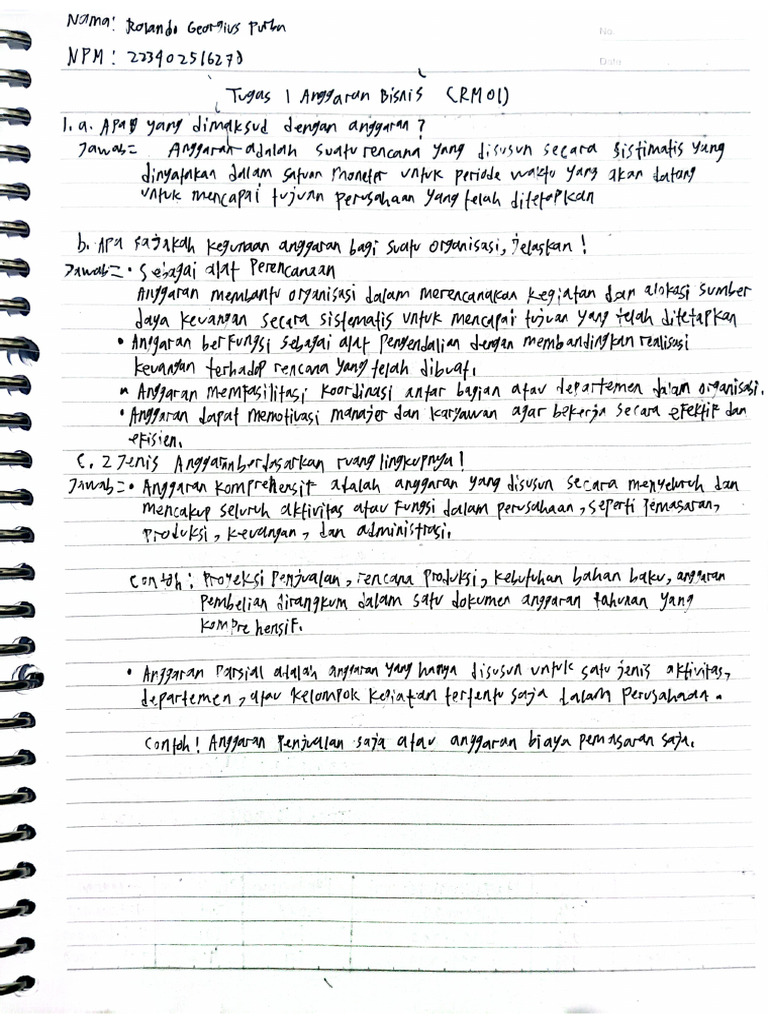 Nama: Rolando Georgius Purba
No.
NPM: 223402516278
Date
Tugas 1 Anggaran Bisnis (RM01)
1. a. Apa yang dimaksud dengan anggaran?
Jawab= Anggaran adalah suatu rencana yang disusun secara sistimatis yang
dinyatakan dalam satuan moneter untuk periode waktu yang akan datang
untuk mencapai tujuan perusahaan yang telah ditetapkan
b. Apa sajakah kegunaan anggaran bagi suatu organisasi, jelaskan!
Jawab= • Sebagai alat Perencanaan
Anggaran membantu organisasi dalam merencanakan kegiatan dan alokasi sumber
daya keuangan secara sistematis untuk mencapai tujuan yang telah ditetapkan
• Anggaran berfungsi sebagai alat pengendalian dengan membandingkan realisasi
keuangan terhadap rencana yang telah dibuat.
• Anggaran memfasilitasi koordinasi antar bagian atau departemen dalam organisasi.
• Anggaran dapat memotivasi manajer dan karyawan agar bekerja secara efektif dan
efisien.
C. 2 Jenis Anggaran berdasarkan ruang lingkupnya!
Jawab= • Anggaran komprehensif adalah anggaran yang disusun secara menyeluruh dan
mencakup seluruh aktivitas atau fungsi dalam perusahaan, seperti pemasaran,
produksi, keuangan, dan administrasi.
Contoh: Proyeksi Penjualan, rencana produksi, kebutuhan bahan baku, anggaran
pembelian dirangkum dalam satu dokumen anggaran tahunan yang
komprehensif.
• Anggaran Parsial adalah anggaran yang hanya disusun untuk satu jenis aktivitas,
departemen, atau kelompok kegiatan tertentu saja dalam perusahaan.
Contoh! Anggaran Penjualan saja atau anggaran biaya pemasaran saja.